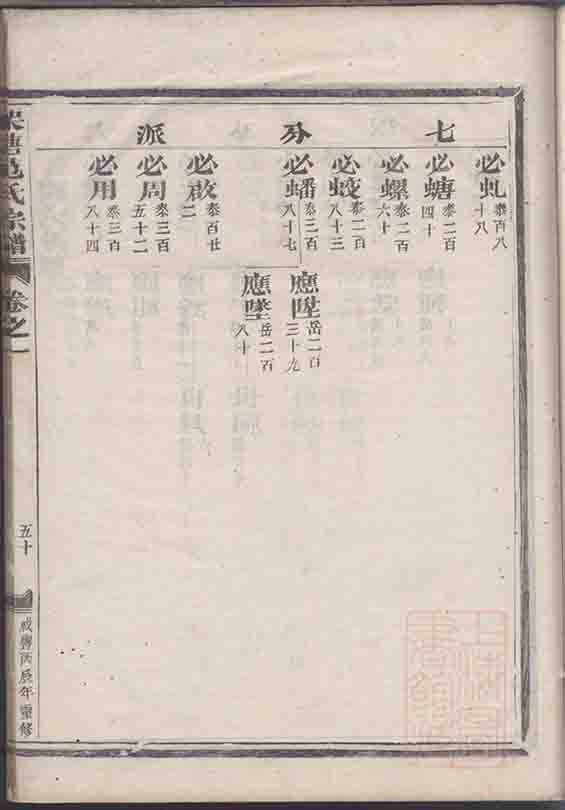 七分派
必虬 泰百八十八
必螗 泰二百四十
必螺 泰二百六十
必蛟 泰二百八十三
必蟠 泰三百八十七
應陞 岳二百三十九
應墜 岳二百八十
必啟 泰百廿二
必周 泰三百五十二
必用 泰三百八十四
氏宗譜
卷之一
五十
咸豐丙辰年重修
上海圖書館藏